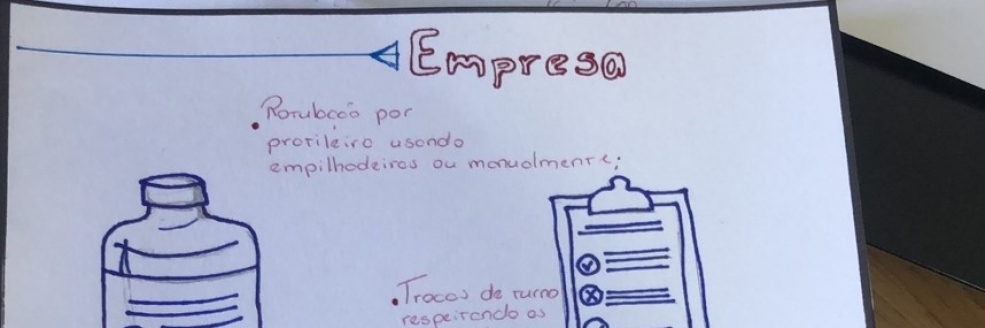 Empresa
• Rotulação por
protileiro usando
empilhadeiras ou manualmente;
• Trocas de turno
respeitando os